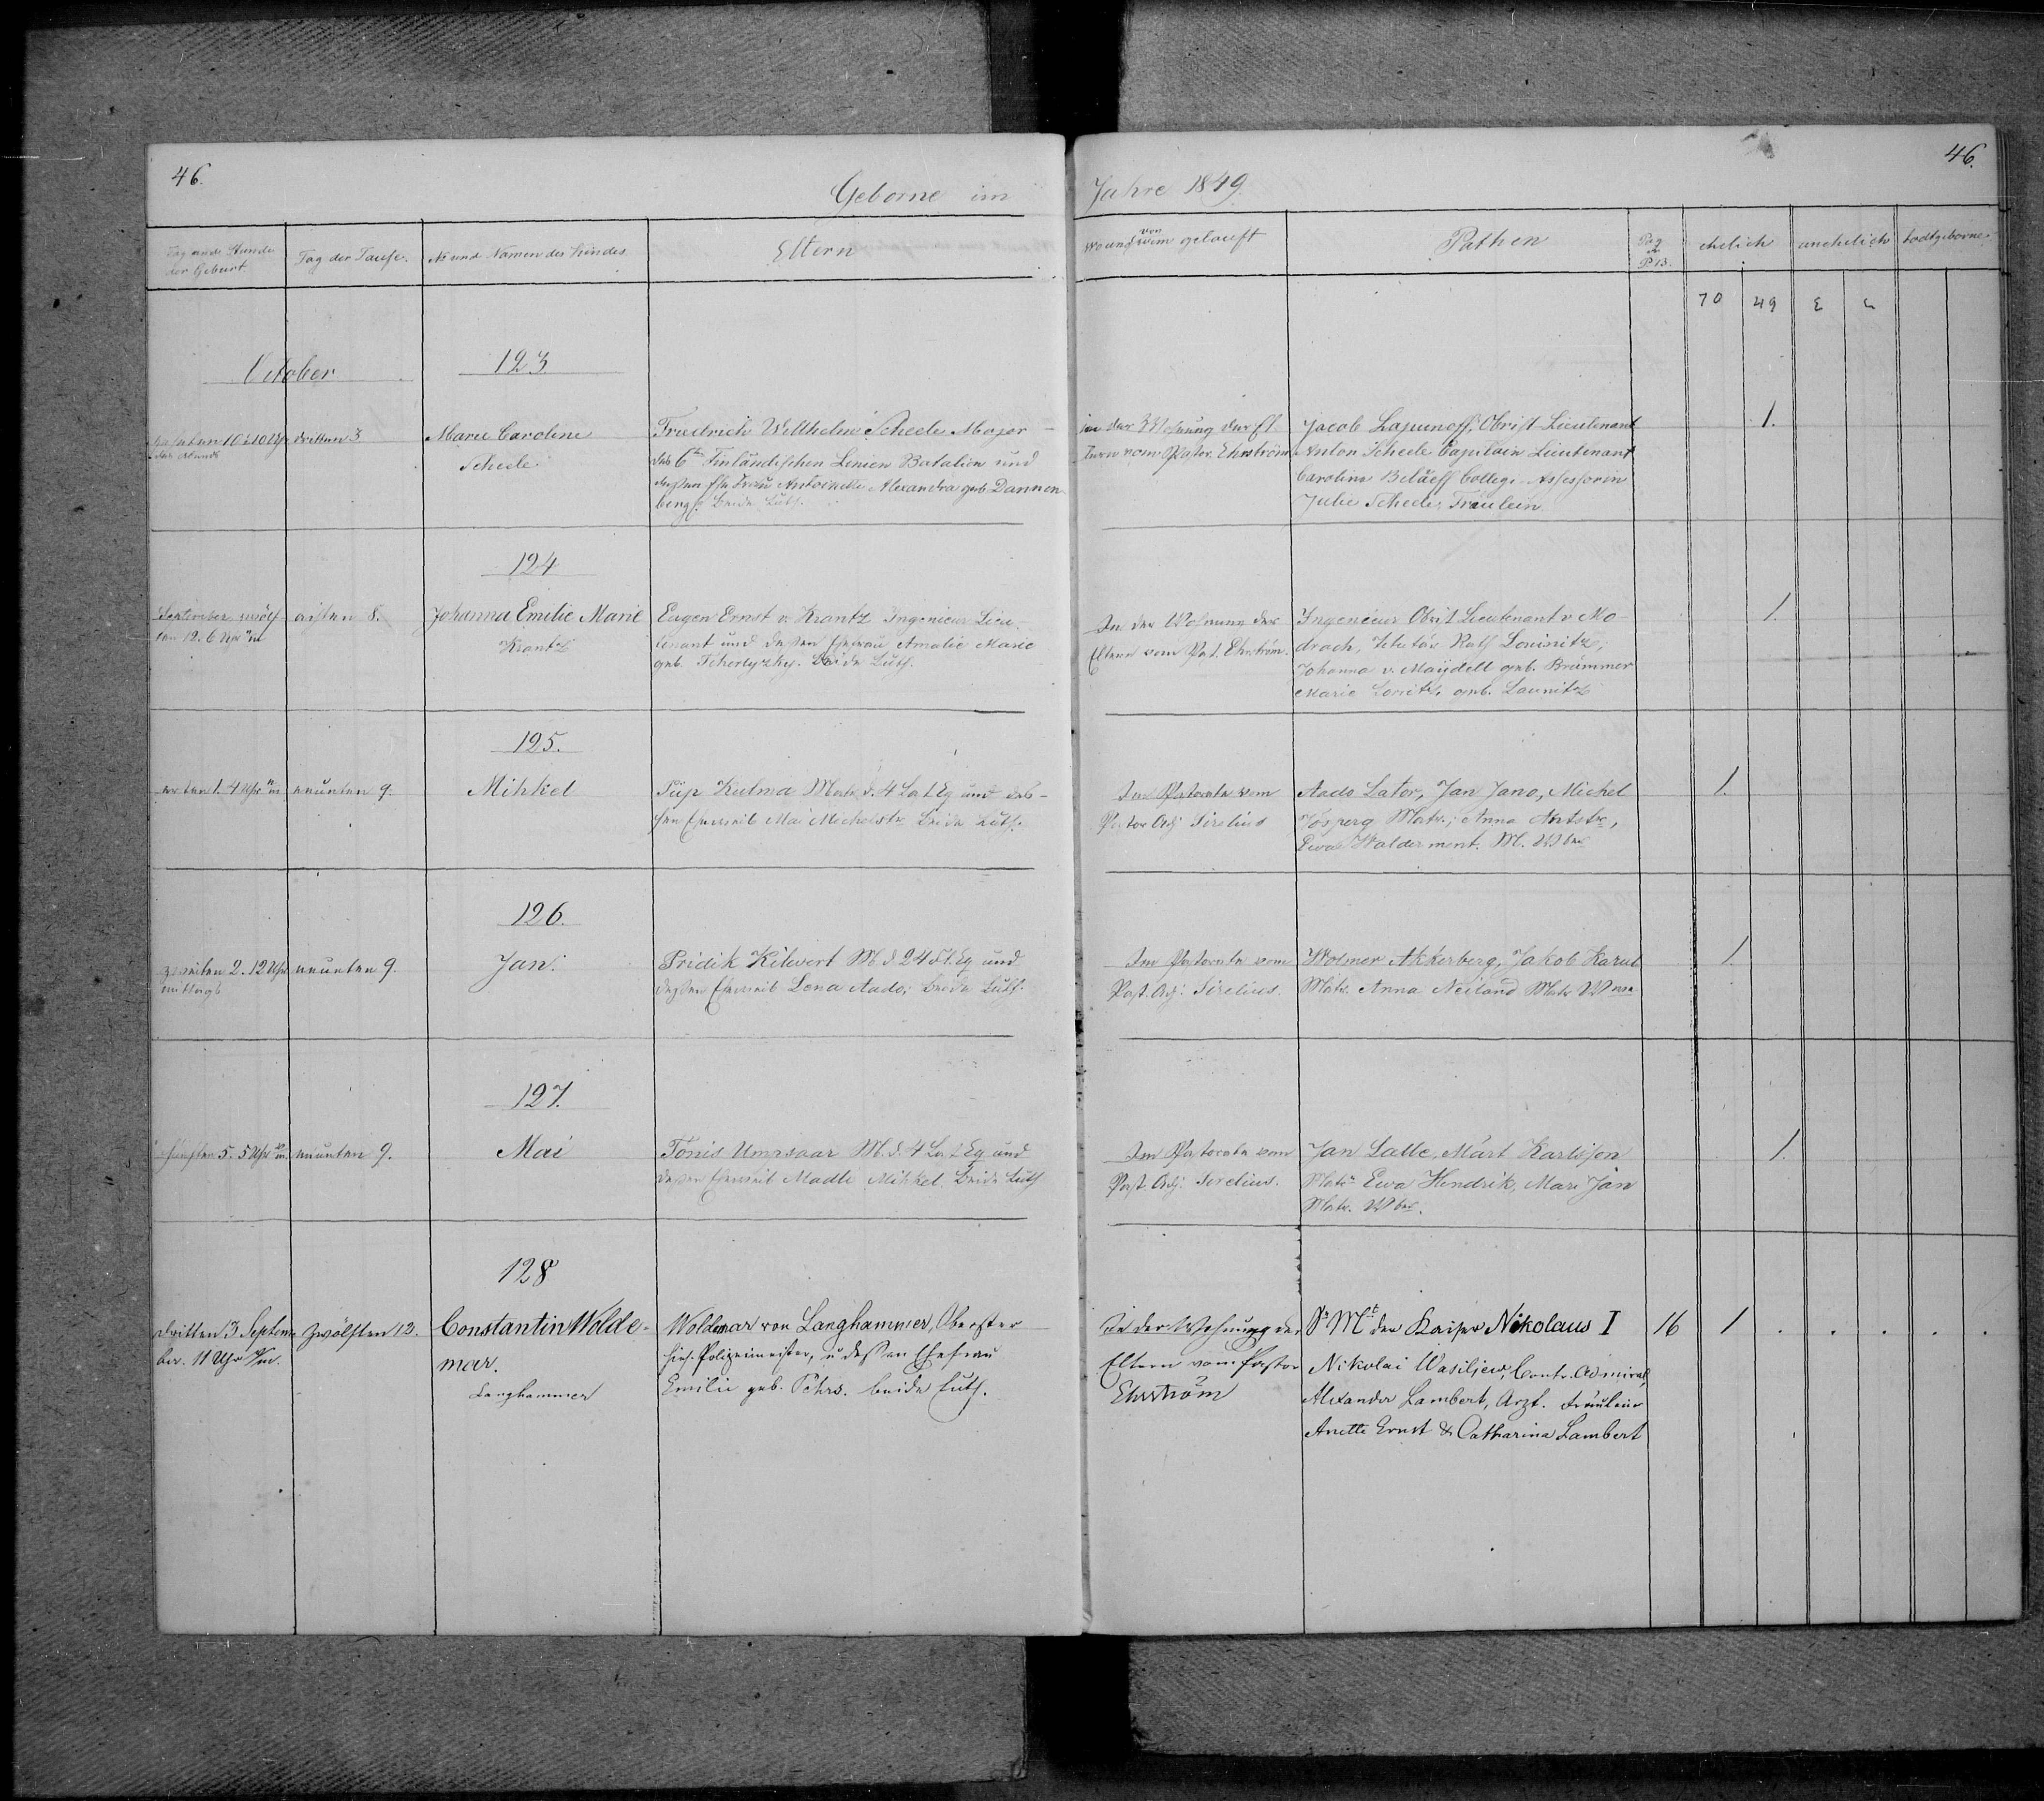 46.
46.
Geborne im Jahre 1849
Tag und Stunde
der Geburt
Tag der Taufe.
No und Namen des Kindes.
Eltern
Wo und von wem getauft
Pathen
Pag.
P. B.
ehelich
unehelich
todtgeborne.
70 49
October
123
10 10 Uhr
des Abends
dritten 3
Marie Caroline
Scheele
Friedrich Willhelm Scheele Major
des 6ten Finländischen Linien Batalion und
dessen Ehe Frau Antoinette Alexandra geb. Dannen
berg. Beide Luth.
in der Wohnung der El-
tern vom Pastor Ehrström
Jacob Lapunoff, Obrist-Lieutenant
Anton Scheele Capitain Lieutenant
Caroline Belaeff Collegi-Assessorin
Julie Scheele, Fräulein
1.
124
September zwölf
ten 12. 6 Uhr
achten 8.
Johanna Emilie Marie
Krantz
Eugen Ernst v. Krantz Ingenieur Lieu-
tenant und dessen Ehefrau Amalie Marie
geb. Beide Luth.
In der Wohnung der
Eltern vom Past. Ehrström.
Ingenieur Obrist Lieutenant v Mo-
drach, Titulär Rath Lousnitz,
Johanna v. Maydell geb. Brümmer
Marie geb. Launitz
1.
125.
ersten 1. 4 Uhr nm
neunten 9.
Mihkel
Püp Kulma Matr. d. 4 La. Eq und des-
sen Eheweib Mai Michelstr. Beide Luth.
Im Pastorate vom
Pastor Adj Sirelius
Aado Lator, Jan Jano, Michel
Matr.; Anna Antstr,
Ewa M. Wbr
1.
126.
zweiten 2. 12 Uhr
mittags
neunten 9.
Jan.
Pridik Kilwert M. d. 24 Fl. Eq und
dessen Eheweib Lena Aado, Beide Luth.
Im Pastorate vom
Past. Adj. Sirelius.
Wolmer Akkerberg, Jakob Karul
Matr. Anna Neiland Matr
1.
127.
fünften 5. 5 Uhr
neunten 9.
Mai
Tönis Umasaar M. d. 4 La. Eq und
dessen Eheweib Madle Mihkel. Beide Luth
Im Pastorate vom
Past. Adj. Sirelius.
Jan Lalle, Märt Karlson
Matr. Ewa Hendrik, Mari Jan
Matr. Wbr.
1.
128
dritten 3 Septem-
ber. 11 Uhr
Zwölften 12.
Constantin Wolde-
mar.
Langhammer
Woldemar von Langhammer, Oberster
hies. Polizeimeister, u dessen Ehefrau
Emilie geb. Pöhrs. beide luth.
In der Wohnung der
Eltern vom Pastor
Ehrström
Sr Mt der Kaiser Nikolaus I
Nikolai Wasiljew, Contr. Admiral,
Alexander Lambert, Arzt. Fräulein
Anette Ernst & Catharina Lambert
16 1 . . . . .